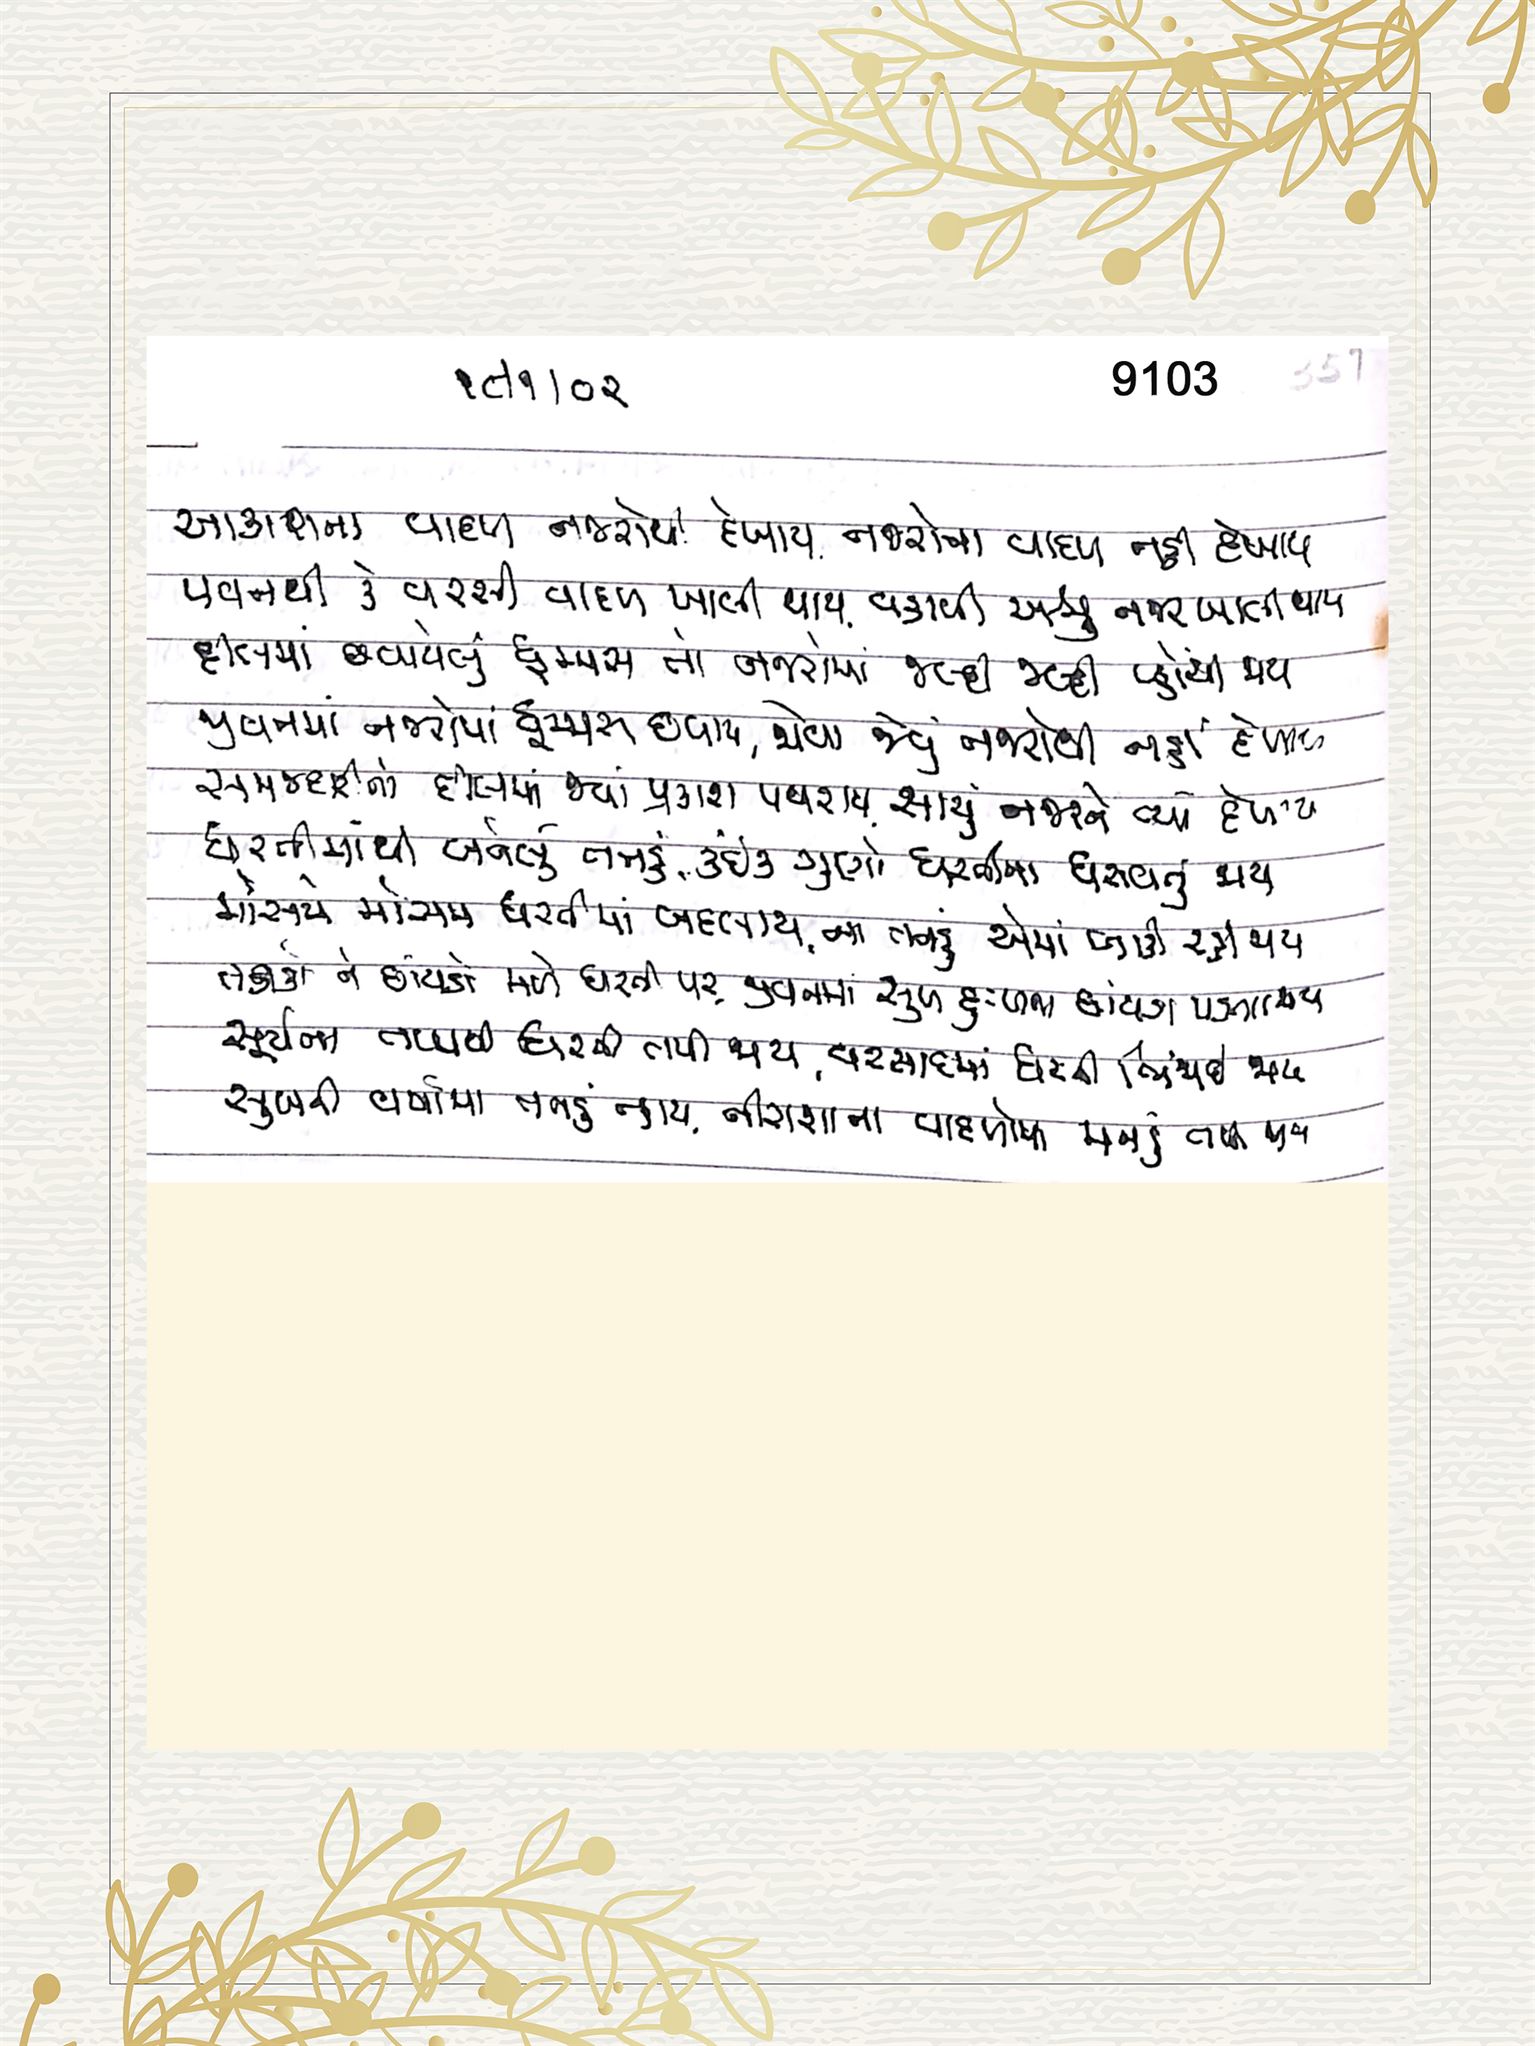 9103
357
આકાશના વાદળ નજરોથી દેખાય. નજરોના વાદળ નહી દેખાય
પવનથી કે વરસી વાદળ ખાલી થાય. વહાવી અશ્રુ નજર ખાલી થાય
દીલમાં છવાયેલું ધુમ્મસ તો નજરોમાં જલ્દી જલ્દી પહોંચી જાય
જીવનમાં નજરોમાં ધુમ્મસ છવાય, જોવા જેવું નજરોથી નહીં દેખાય
સમજદારીનો દીલમાં જ્યાં પ્રકાશ પથરાય. સાચું નજરને ત્યાં દેખાય
ધરતીમાંથી બનેલું તનડું. કંઈક ગુણો ધરતીના ધરાવતું જાય
મોસમે મોસમ ધરતીમાં બદલાય. ના તનડું એમાં બાકી રહી જાય
તડકો ને છાંયડો મળે ધરતી પર. જીવનમાં સુખ દુઃખના છાંયડા પડતા જાય
સૂર્યના તાપથી ધરતી તપી જાય, વરસાદમાં ધરતી ભિંજાઈ જાય
સુખની વર્ષામાં તનડું ન્હાય. નીરાશાના વાદળોમાં મનડું જાય